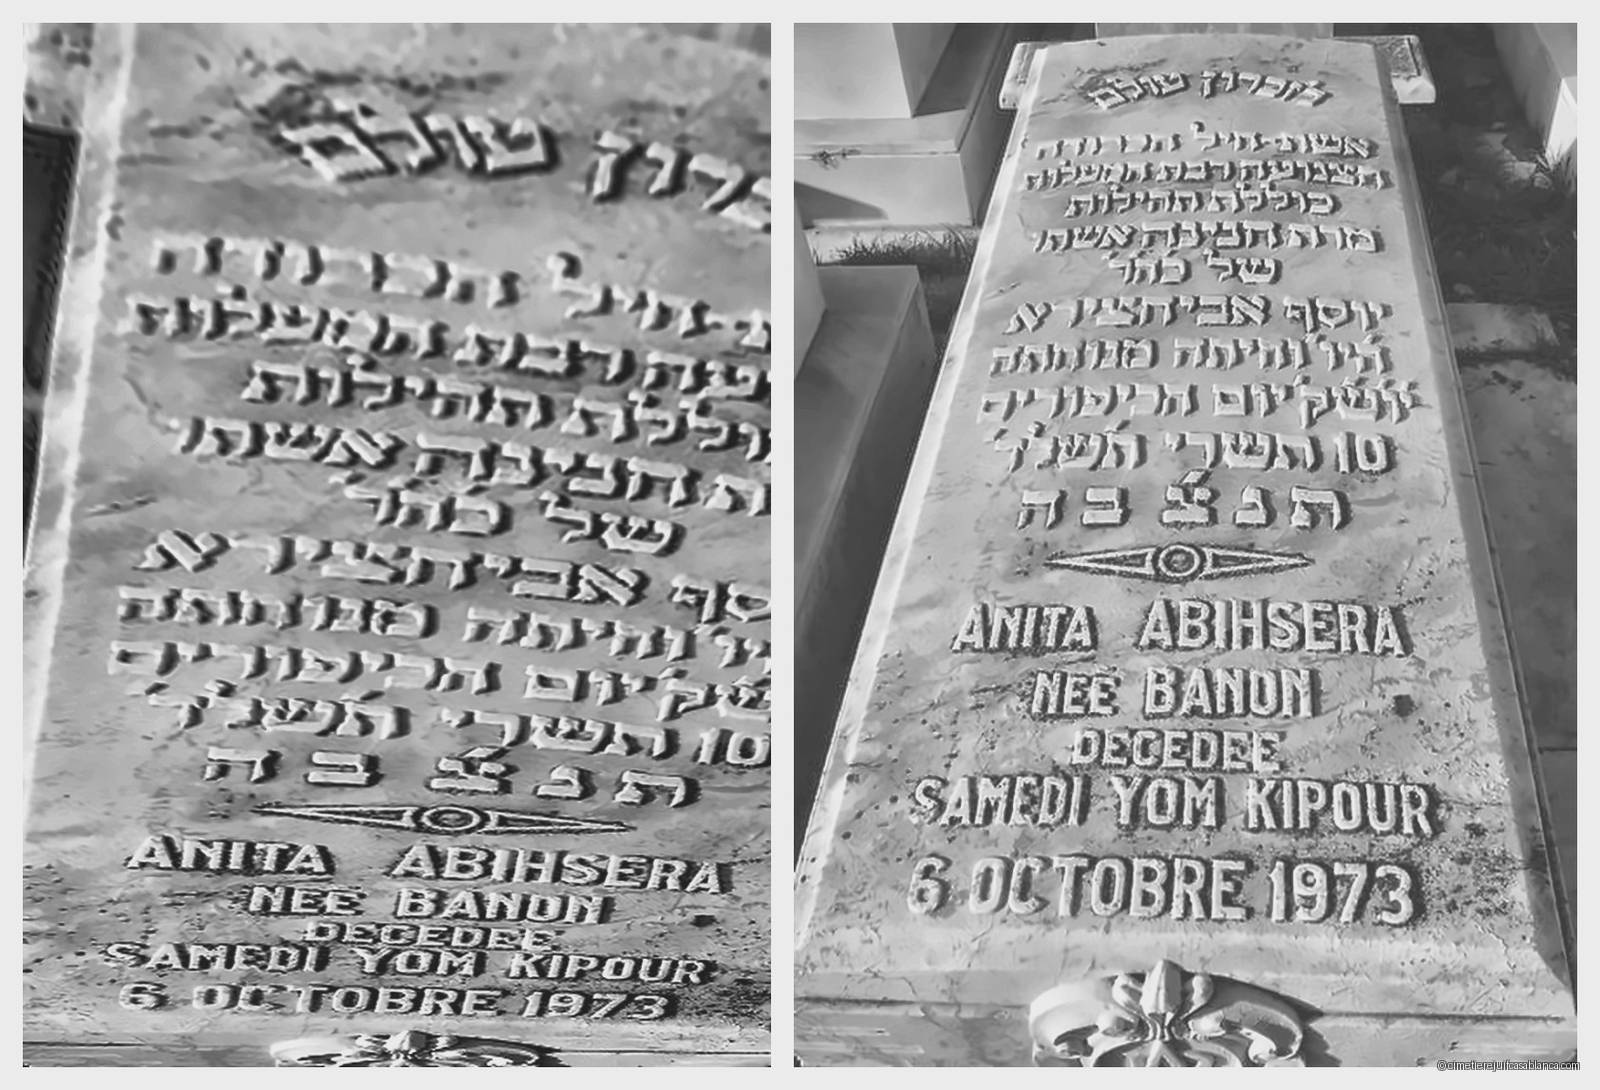 כרון עולם
חיל הכבודה
רבת המעלות
וללת תהילות
אשתו
של כה'ר
סף אביחצירא
והיתה מנוחתה
יום הכיפורים
10 תשרי תשל'ד
ת נ צ ב ה
ANITA ABIHSERA
NEE BANON
DECEDEE
SAMEDI YOM KIPOUR
6 OCTOBRE 1973
לזכרון עולם
אשת-חיל הכבודה
הצנועה רבת המעלות
כוללת תהילות
מרת אשתו
של כה'ר
יוסף אביחצירא
הי"ו והיתה מנוחתה
יוש"ק יום הכיפורים
10 תשרי תשל'ד
ת נ צ ב ה
ANITA ABIHSERA
NEE BANON
DECEDEE
SAMEDI YOM KIPOUR
6 OCTOBRE 1973
©cimetierejuifcasablanca.com